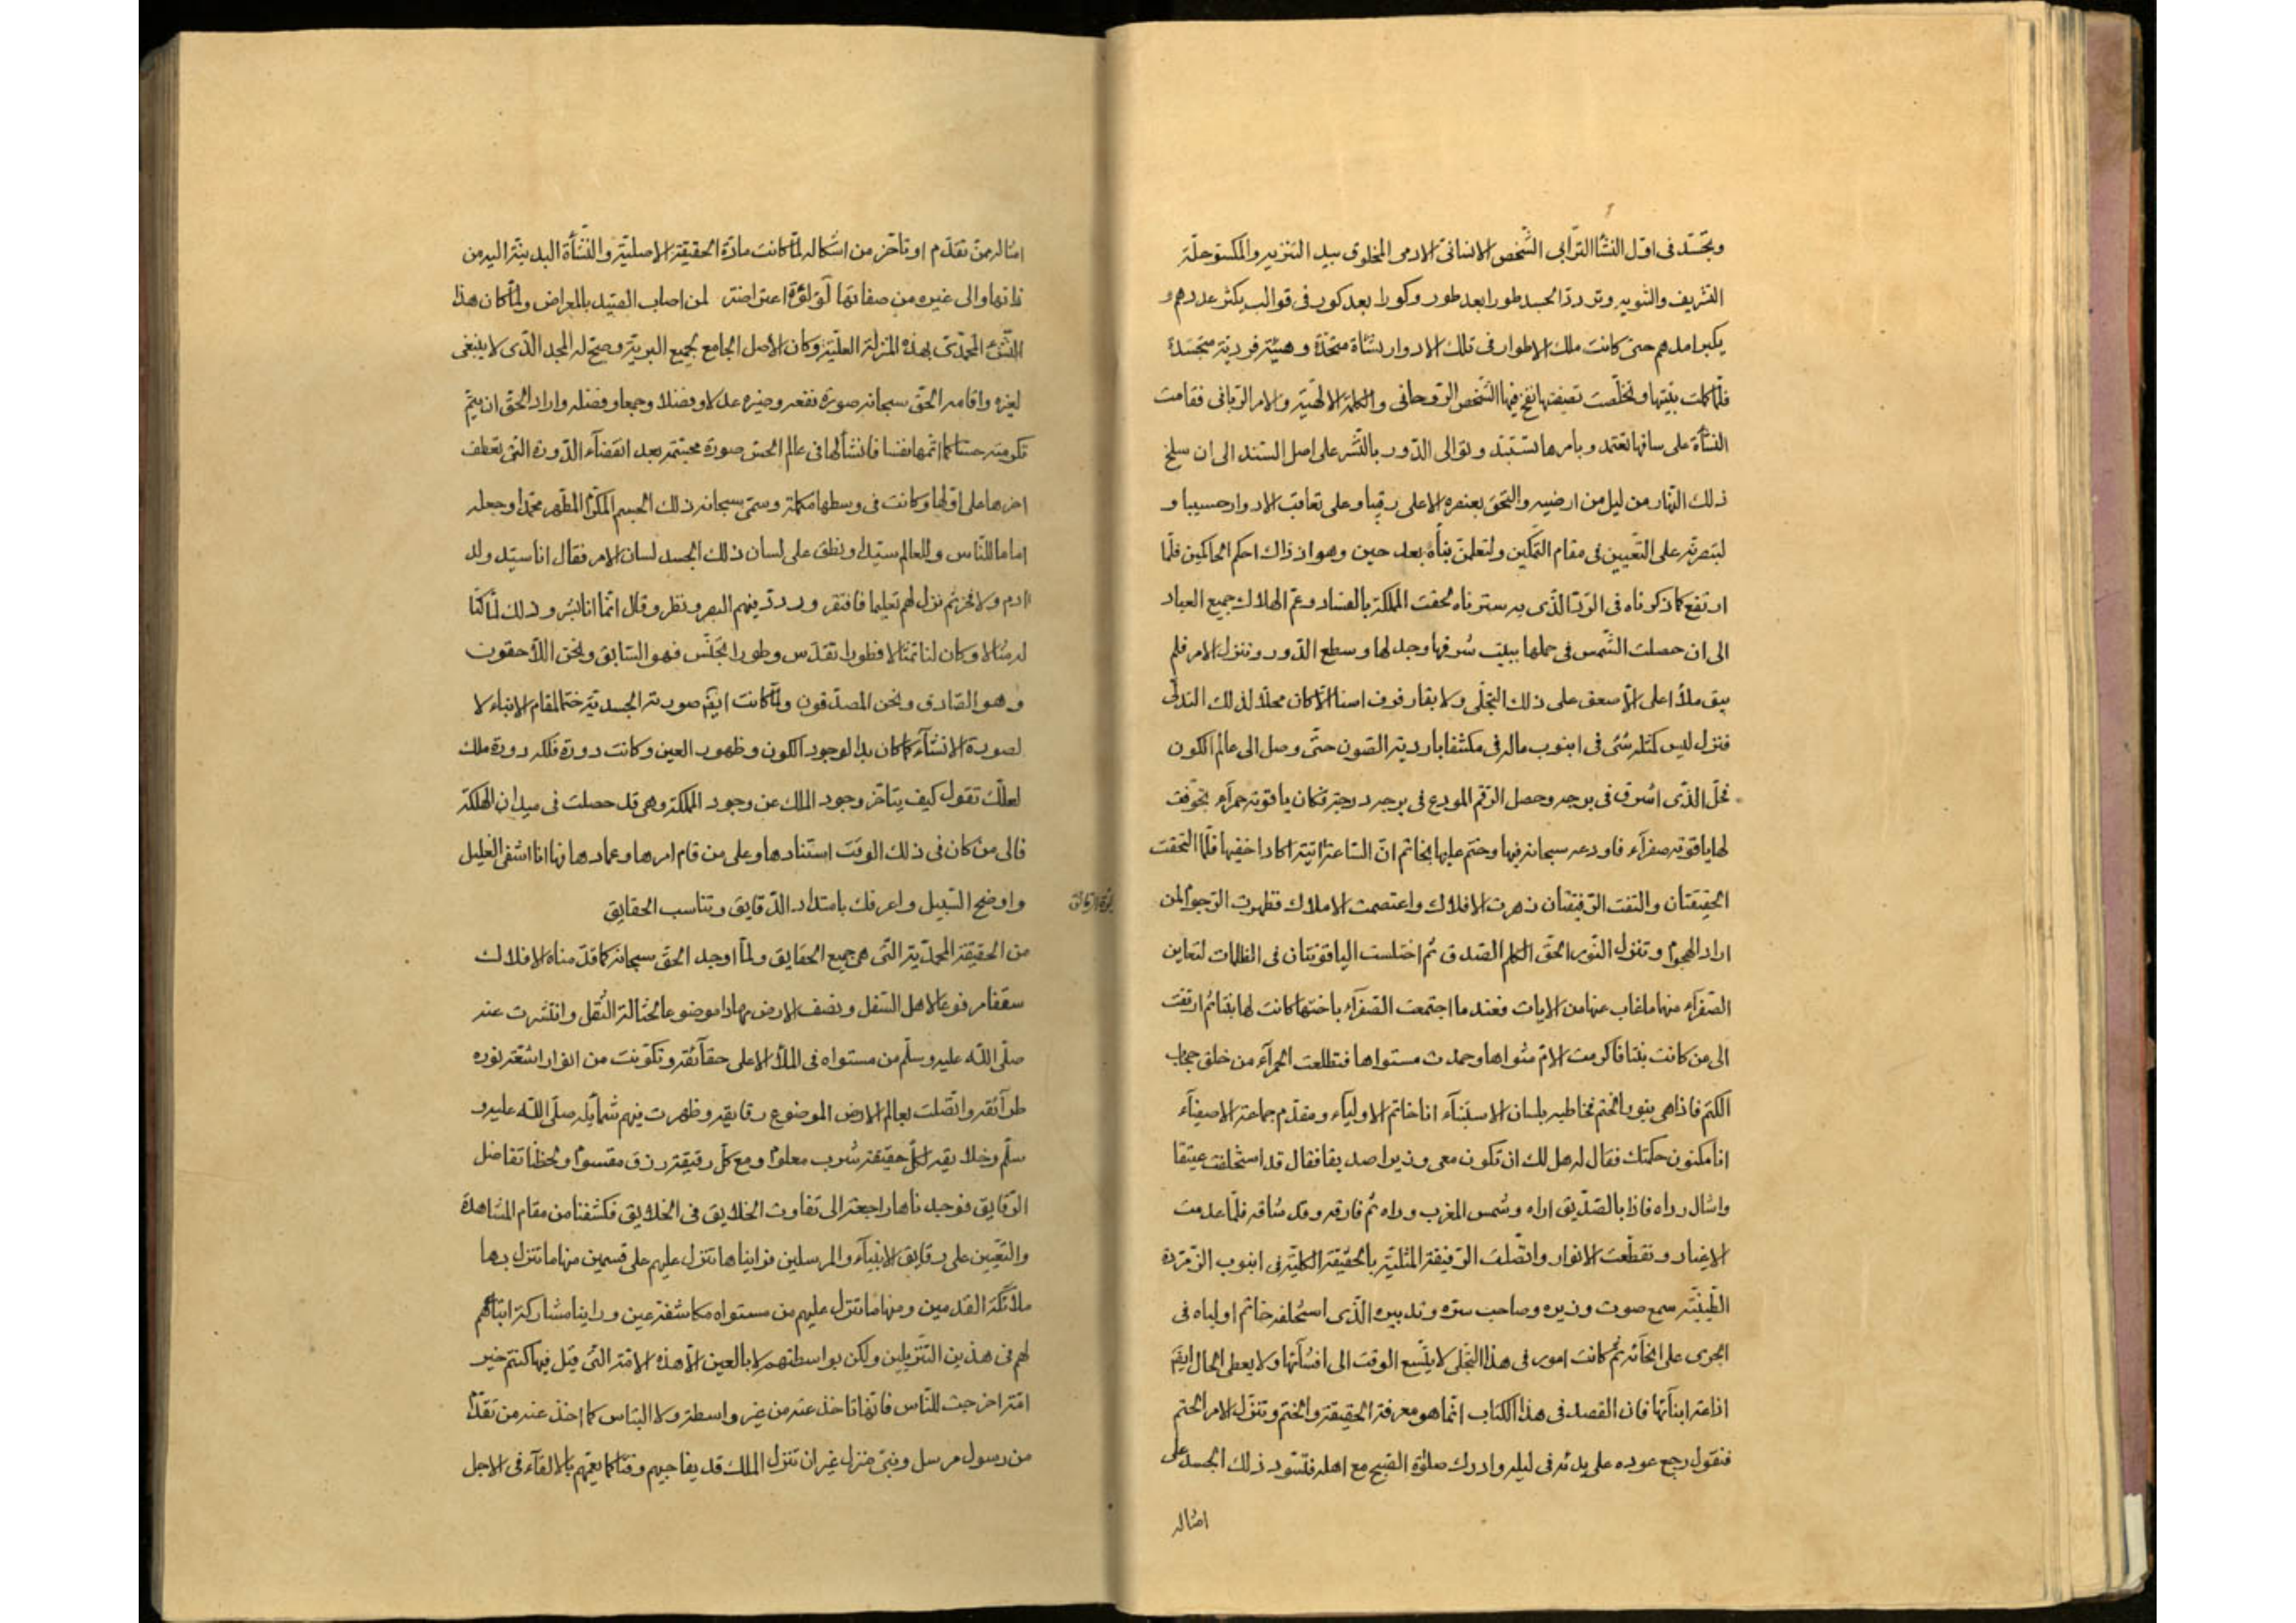 وتجسد فى اول النشأ الترابى الشخص الانسانى الادمى المخلوق بيد التنزيه والمكسو حلة
التشريف والتنويه وتردد الجسد طورا بعد طور وكورا بعد كور فى قوالب يكثر عددهم و
يكبر امدهم حتى كانت ملك الاطوار فى تلك الادوار نشأة متحدة وهيئة فردية متجسدة
فلما كملت بنيتها وتخلصت تصفيتها نفخ فيها الشخص الروحانى والكلمة الالهية والامر الربانى فقامت
النشأة على ساقها تعتمد وبامرها تستبد وتوالى الدور بالنشر على اصل السند الى ان سلخ
ذلك النهار من ليل من ارضيه والتحق بعنصره الاعلى رقيبا وعلى تعاقب الادوار حسيبا و
على التعيين فى مقام التمكين ولتعلمن نبأه بعد حين وهو اذ ذاك احكم الحاكمين فلما
ارتفع كما ذكرناه فى الردا الذى به سترناه لحقت المملكة بالفساد وعم الهلاك جميع العباد
الى ان حصلت الشمس فى حملها ببيت شرفها وجد لها وسطع الدور وتنزل الامر فلم
يبق ملأ اعلى الا صعق على ذلك التجلى ولا بقا رفرف اسنا الا كان محلا لذلك التدلى
فنزل ليس كمثله شئ فى انبوب ماله فى مكتنفا باردية الصون حتى وصل الى عالم الكون
فحل الذى اشرق فى برجه وحصل الرقم المودع فى برجه درجة فكان ياقوتة حمرآء تجوفت
لها ياقوتة صفرآء فاودعه سبحانه فيها وختم عليها بخاتم ان الساعة اتية اكاد اخفيها فلما التحقت
الحقيقتان والتفت الرقيقتان زهرت الافلاك واعتصمت الاملاك فظهرت الرجوم لمن
اراد الهجوم وتنزل النور الحق الكلم الصدق ثم اختلست الياقوتتان فى الظلمات لتعاين
الصفرآء منها ما غاب عنها من الايات فعندما اجتمعت الصفرآء باختها كانت لها بنتا ثم ارتقت
الى من كانت بنتا فاكرمت الام مثواها وحمدت مستواها فتطلعت الحمرآء من خلف حجاب
الكتم فاذا هى بنور الختم تخاطبه بلسان الاستنبآء انا خاتم الاوليآء ومقدم جماعة الاصفيآء
انا مكنون حكمتك فقال له هل لك ان تكون معى وزيرا صديقا فقال قد استخلفت عتيقا
واسال رداه فاذا بالصديق اراه وشمس المغرب وراه ثم فارقه وقد شاقه فلما عدمت
الاغيار وتقطعت الانوار واتصلت الرقيقة المثلية بالحقيقة الكلية فى انبوب الزمردة
الطينية سمع صوت وزيره وصاحب سره وتدبيره الذى استخلفه خاتم اولياه فى
الجرى على انحآئه ثم كانت امور فى هذا التجلى لا يتسع الوقت الى افشآئها ولا يعطى الحال ايضا
اذاعة ابنآئها فان القصد فى هذا الكتاب انما هو معرفة الحقيقة والختم وتنزل الامر الحتم
فنقول رجع عوده على بدئه فى ليله وادرك صلوة الصبح مع اهله فتسود ذلك الجسد على
امثاله
امثاله من تقدم او تاخر من اشكاله لما كانت مادة الحقيقة الاصلية والنشأة البدئية اليه من
ذاتها والى غيره من صفاتها لؤلؤة اعتراضة لمن اصاب الصيد بالمعراض ولما كان هذا
النشء المحمدى بهذه المنزلة العلية وكان الأصل الجامع لجميع البرية وصح له المجد الذى لا ينبغى
لغيره واقامه الحق سبحانه صورة نفعه وضيره عدلا وفضلا وجمعا وفصلا واراد الحق ان يتم
تكرمته حسا كما اتمها نفسا فانشأ لها فى عالم الحس صورة مجسمة بعد انقضآء الدورة التى تعطف
اخرها على اولها وكانت فى وسطها مكملة وسمى سبحانه ذلك الجسم المكرم المطهر محمدا وجعله
اماما للناس وللعالم سيدا ونطق على لسان ذلك الجسد لسان الامر فقال انا سيد ولد
ادم ولا فخر ثم نزل لهم تعليما فافتقر وردد فيهم البصر ونظر وقال انما انا بشر وذلك لما كنا
له مثالا وكان لنا تمثالا فطورا تقدس وطورا تجنس فهو السابق ونحن اللاحقون
وهو الصادق ونحن المصدقون ولما كانت ايضا صورته الجسدية ختما لمقام الانباء لا
لصورة الانشآء كما كان بدا لوجود الكون وظهور العين وكانت دورة فلكه دورة ملك
لعلك تقول كيف يتاخر وجود الملك عن وجود المملكة وهى قد حصلت فى ميدان الهلكة
فالى من كان فى ذلك الوقت استنادها وعلى من قام امرها وعمادها فها انا اشفى الغليل
واوضح السبيل واعرفك بامتداد الدقايق وتناسب الحقايق
من الحقيقة المحمدية التى هى جميع الحقايق ولما اوجد الحق سبحانه كما قدمناه الافلاك
سقفا مرفوعا لاهل السفل ونصف الارض مهادا موضوعا لحثالة الثقل وانتشرت عنه
صلى الله عليه وسلم من مستواه فى الملأ الاعلى حقآئقه وتكونت من انوار اشعة نوره
طرآئقه واتصلت بعالم الارض الموضوع رقايقه وظهرت فيهم شمآئله صلى الله عليه و
سلم وخلايقه لكل حقيقة شرب معلوم ومع كل رقيقة رزق مقسوم ولحظنا تفاضل
الرقايق فوجدناها راجعة الى تفاوت الخلايق فى الخلايق فكشفنا من مقام المشاهدة
والتعيين على رقايق الانبيآء والمرسلين فرايناها تنزل عليهم على قسمين منها ما تنزل بها
ملائكة القدمين ومنها ما تنزل عليهم من مستواه مكاشفة عين وراينا مشاركة اتباعهم
لهم فى هذين التنزيلين ولكن بواسطتهم لا بالعين الا هذه الامة التى قيل فيها كنتم خير
امة اخرجت للناس فانها تاخذ عنه من غير واسطة ولا التباس كما اخذ عنه من تقدم
من رسول مرسل ونبى منزل غير ان تنزل الملك قد يفاجيهم وقتا كما يعمهم بالالقآء فى الاجل